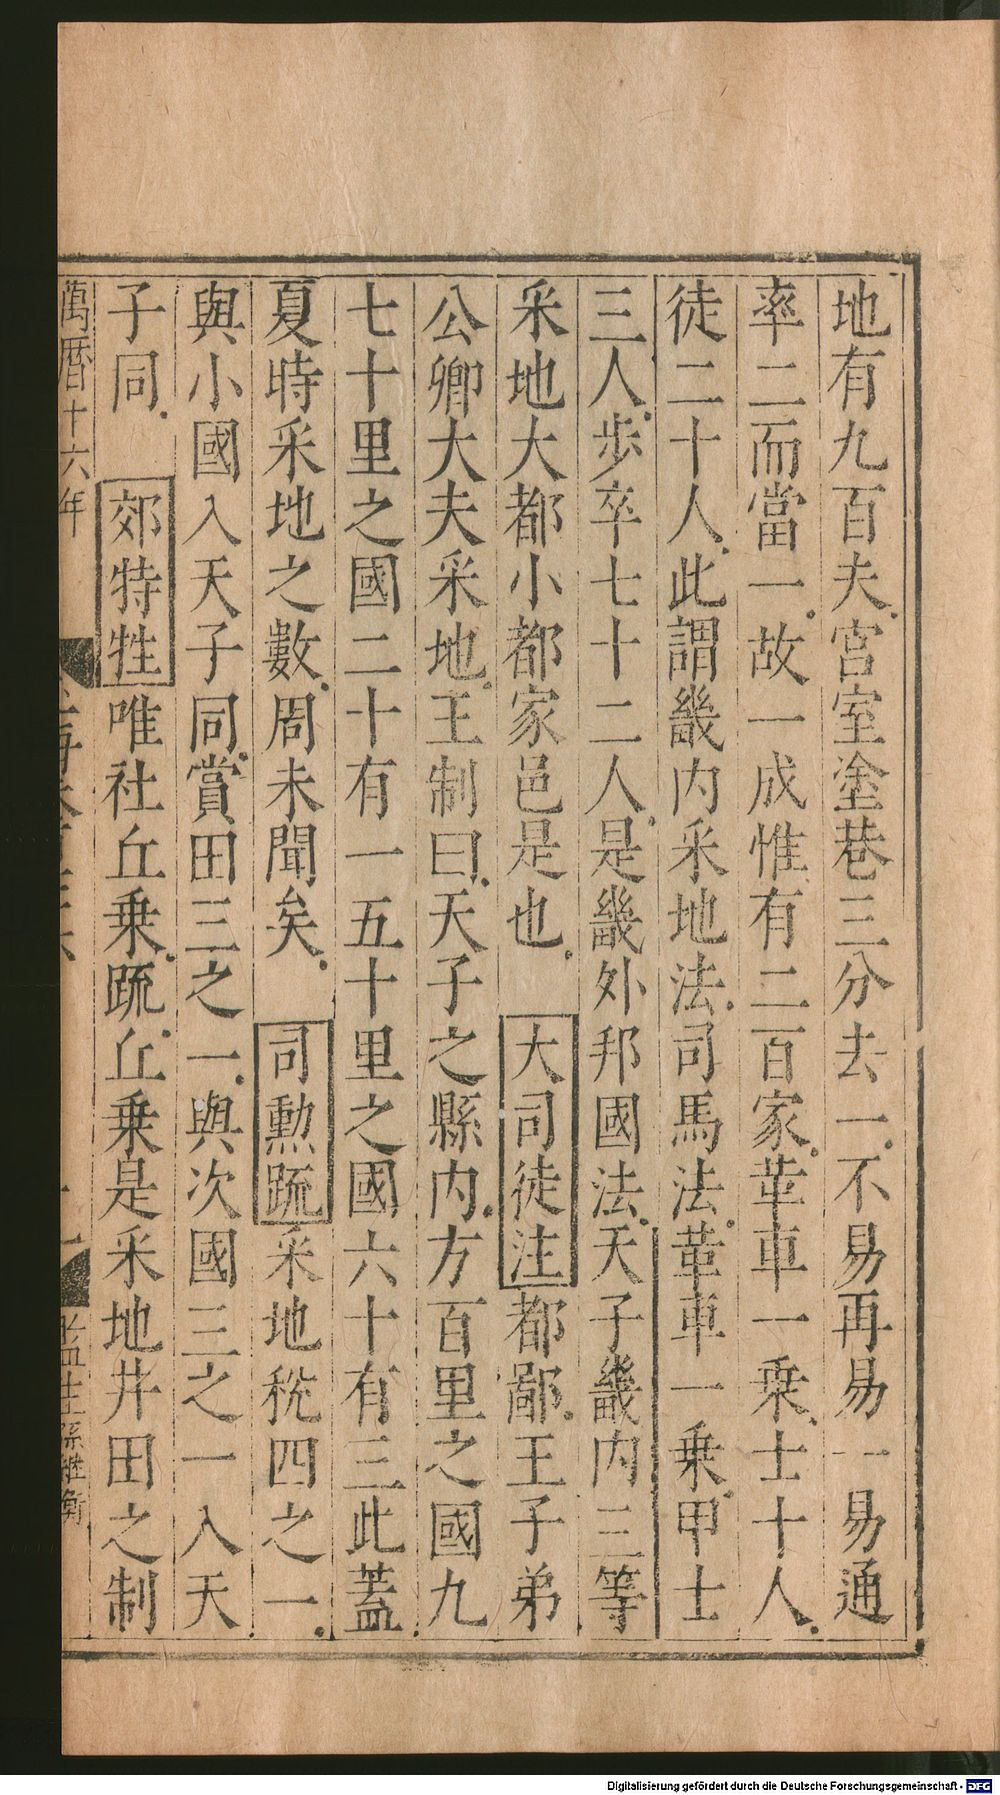 地有九百夫宮室塗巷三分去一不易再易一易通
率二而當一故一成惟有二百家革車一乗士十人
徒二十人此謂畿内采地法司馬法革車一乗甲士
三人歩卒七十二人是畿外邦國法天子畿内三等
采地大都小都家邑是也　大司徒注都鄙王子弟
公卿大夫采地王制曰天子之縣内方百里之國九
七十里之國二十有一五十里之國六十有三此蓋
夏時采地之數周未聞矣　司勲䟽采地稅四之一
與小國入天子同賞田三之一與次國三之一入天
子同　郊特牲唯社丘乗䟽丘乗是采地井田之制
萬曆十六年
監生孫繼衡
Digitalisierung gefördert durch die Deutsche Forschungsgemeinschaft - DFG